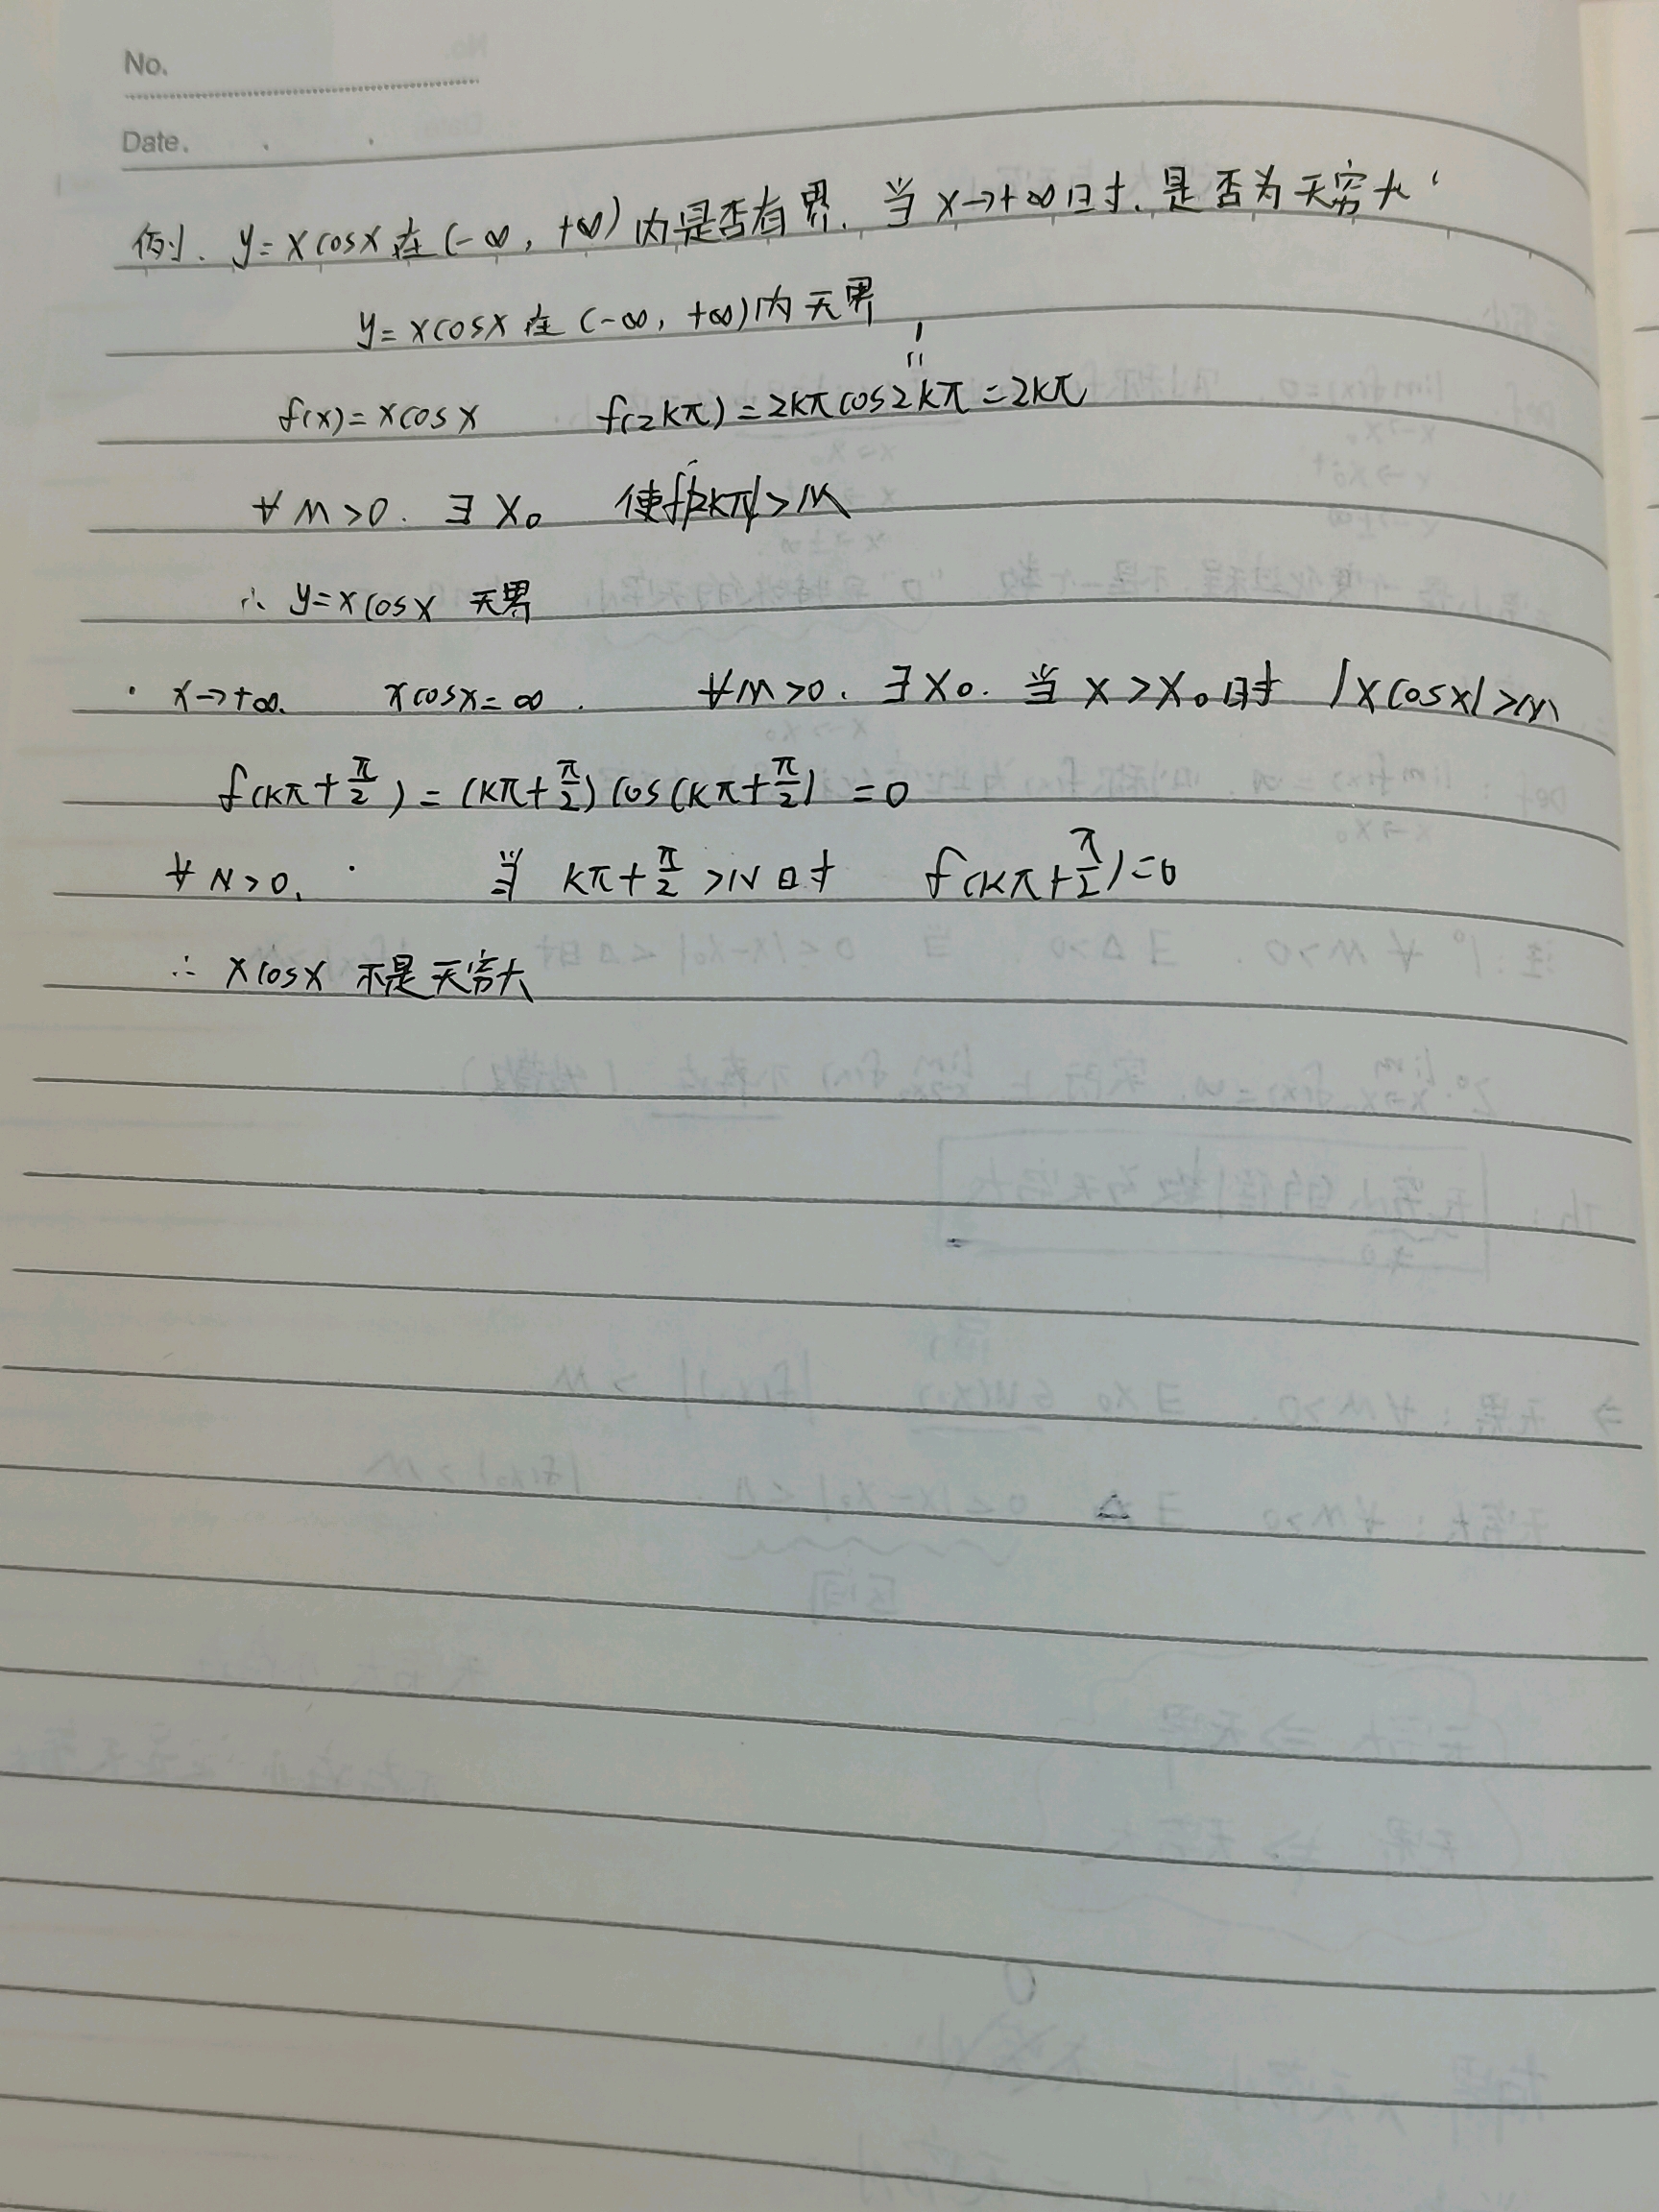 No.
Date.
例. y=xcosx在(-∞, +∞)内是否有界. 当x→+∞时. 是否为无穷大
y=xcosx在(-∞, +∞)内无界
f(x)=xcosx f(2kπ)=2kπcos2kπ=2kπ
∀M>0. ∃X₀ 使|f(2kπ)|>M
∴ y=xcosx 无界
· x→+∞. xcosx=∞. ∀M>0. ∃X₀. 当x>X₀时 |xcosx|>M
f(kπ+π/2)=(kπ+π/2)cos(kπ+π/2)=0
∀N>0. 当 kπ+π/2>N时 f(kπ+π/2)=0
∴ xcosx 不是无穷大